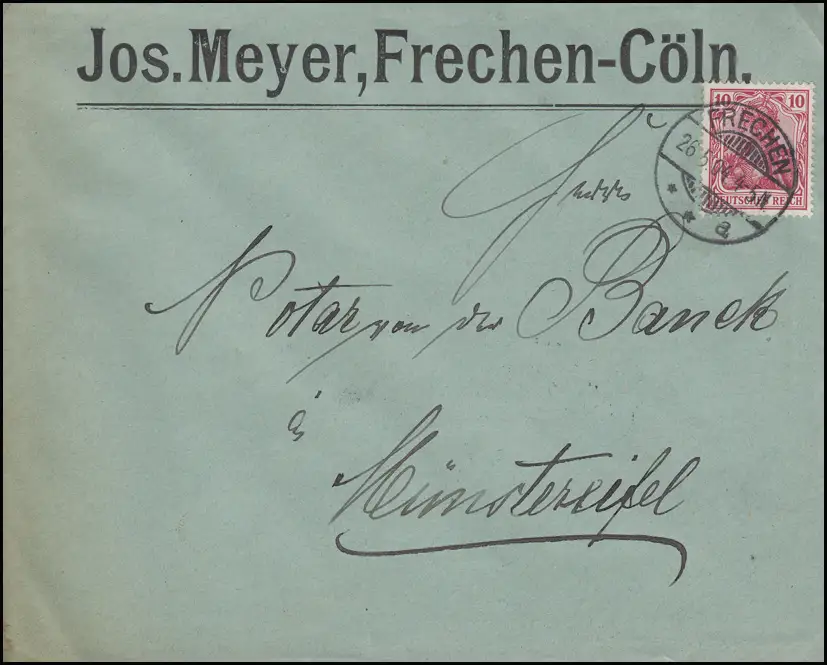 Jos. Meyer, Frechen-Cöln.
10 10
DEUTSCHES REICH
FRECHEN
26.5.04. 4-5N
a
Herrn
Notar von der Banck
à
Münstereifel